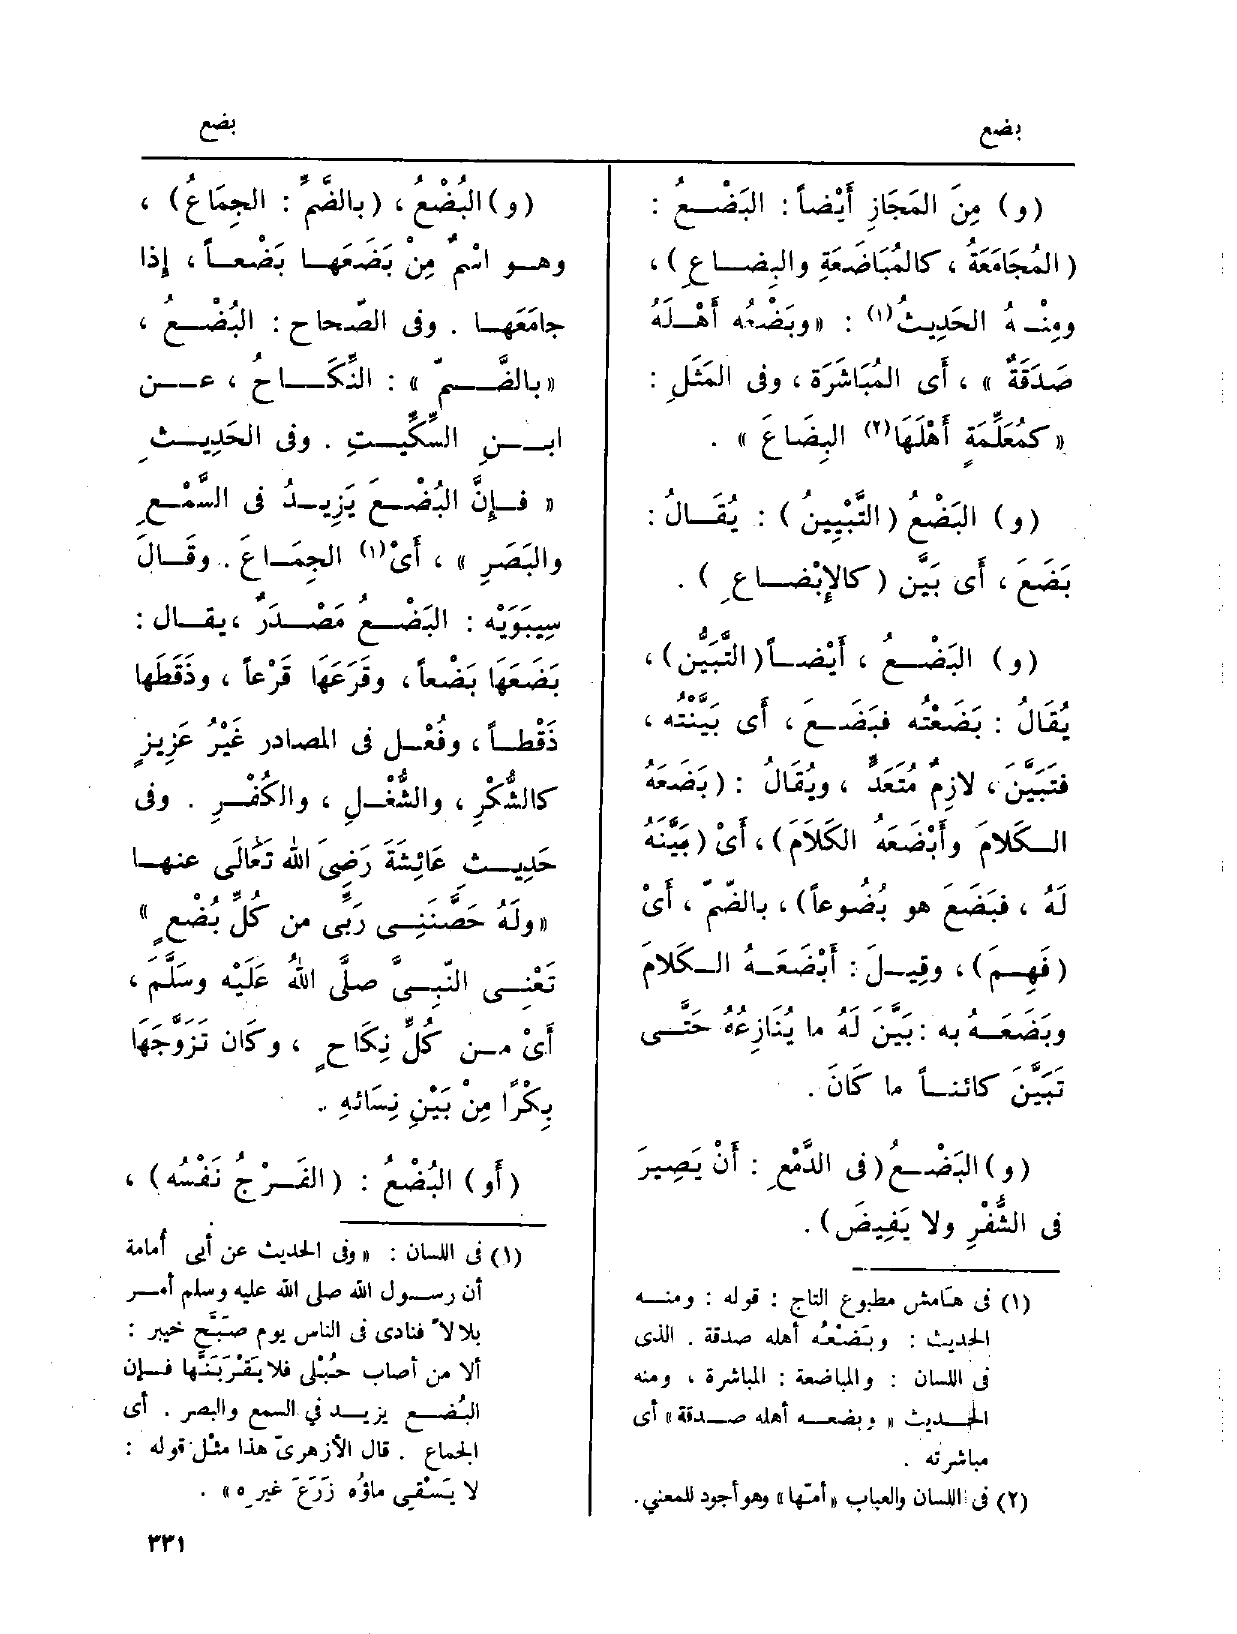 بضع
بضع
(و) مِنَ المَجَازِ أَيْضاً : البَضْـعُ :
(المُجَامَعَةُ ، كالمُبَاضَعَةِ والبِضـاعِ)،
ومِنْـهُ الحَدِيثُ(١) : «وبَضْعُه أَهْـلَهُ
صَدَقَةٌ» ، أَى المُبَاشَرَة ، وفى المَثَلِ :
«كمُعَلِّمَةٍ أَهْلَهَا(٢) البِضَاعَ» .
(و) البَضْعُ (التَّبْيِينُ) : يُقَـالُ :
بَضَعَ ، أَى بَيَّن (كالإِبْضـاعِ) .
(و) البَضْـعُ ، أَيْضـاً (التَّبَيُّن)،
يُقَالُ : بَضَعْتُه فبَضَـعَ ، أَى بَيَّنْتُه ،
فتَبَيَّنَ ، لازِمٌ مُتَعَدٌّ ، ويُقَالُ : (بَضَعَهُ
الـكَلَامَ وأَبْضَعَهُ الكَلَامَ)، أَىْ (بَيَّنَهُ
لَهُ ، فبَضَعَ هو بُضُوعاً)، بالضّمّ ، أَىْ
(فَهِـمَ)، وقِيـلَ : أَبْضَعَـهُ الـكَلَامَ
وبَضَعَـهُ به : بَيَّنَ لَهُ ما يُنَازِعُهُ حَتَّـى
تَبَيَّنَ كائنـاً ما كَانَ .
(و) البَضْـعُ (فى الدَّمْعِ : أَنْ يَصِيرَ
فى الشُّفْرِ ولا يَفِيضَ) .
(١) فى هامش مطبوع التاج : قوله : ومنـه
الحديث : وبَضْعُه أهله صدقة . الذى
فى اللسان : والمباضعة : المباشرة ، ومنه
الحـديث «وبضعـه أهله صـدقة» أى
مباشرته .
(٢) فى اللسان والعباب «أمّها» وهو أجود للمعنى.
(و) البُضْعُ ، (بالضَّمِّ : الجِمَاعُ) ،
وهـو اسْمٌ مِنْ بَضَعَهـا بَضْعـاً ، إِذا
جامَعَهـا . وفى الصّحاح : البُضْـعُ ،
«بالضَّـمّ» : النِّكَـاحُ ، عـن
ابـنِ السِّكِّيـتِ . وفى الحَدِيـثِ
«فـإِنَّ البُضْـعَ يَزِيـدُ فى السَّمْـعِ
والبَصَرِ» ، أَىْ(١) الجِمَـاعَ . وقَـالَ
سِيبَوَيْه : البَضْـعُ مَصْـدَرٌ ، يقـال :
بَضَعَهَا بَضْعاً ، وقَرَعَهَا قَرْعاً ، وذَقَطَها
ذَقْطـاً ، وفُعْـل فى المصادر غَيْرُ عَزِيزٍ
كالشُّكْرِ ، والشُّغْـلِ ، والكُفْـرِ . وفى
حَدِيـث عَائِشَةَ رَضِىَ اللهُ تَعَالَى عنهـا
«ولَهُ حَصَّنَنِـى رَبِّى من كُلِّ بُضْعٍ»
تَعْنِـى النَّبِـىَّ صلَّى اللهُ عَلَيْه وسَلَّمَ ،
أَىْ مـن كُلِّ نِكَاحٍ ، وكَان تَزَوَّجَهَا
بِكْرًا مِنْ بَيْنِ نِسَائهِ .
(أَو) البُضْعُ : (الفَـرْجُ نَفْسُه) ،
(١) فى اللسان : «وفى الحديث عن أبى أمامة
أن رسـول الله صلى الله عليه وسلم أمـر
بلالاً فنادى فى الناس يوم صَبَّح خيبر :
ألا من أصاب حُبْلى فلا يَقْرَبَنَّها فـإن
البُضـع يزيـد في السمع والبصر . أى
الجماع . قال الأزهرىّ هذا مثل قوله :
لا يَسْقِى ماؤه زَرَعَ غيره» .
٣٣١